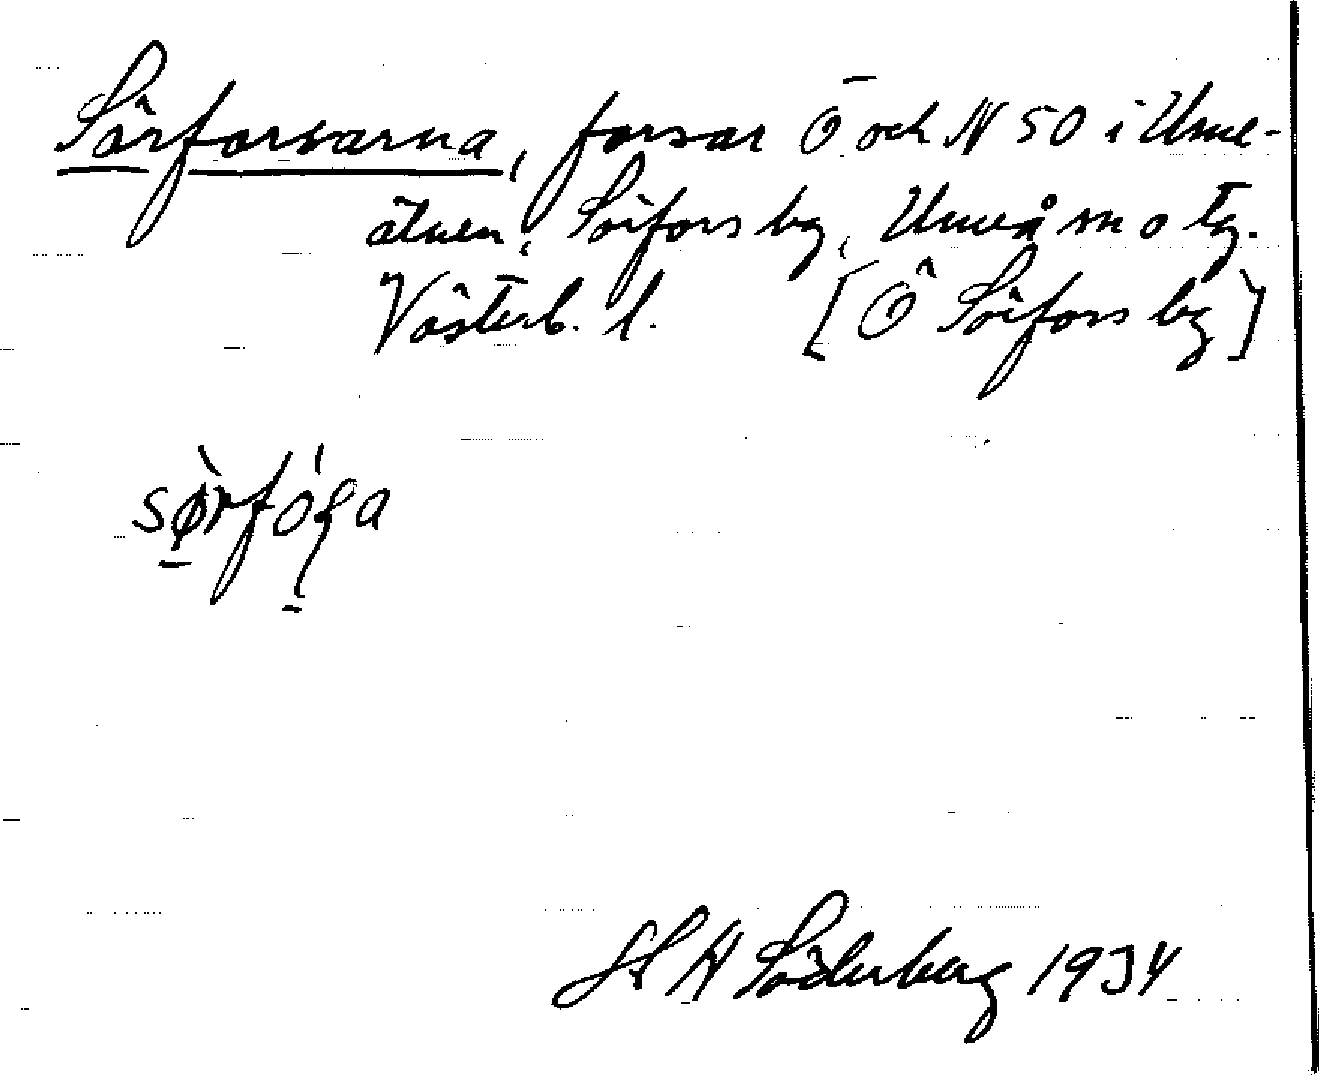 Sörforsarna, forsar Ö och N SO i Ume-
älven, Sörfors by, Umeå sn o tg.
Västerb. l. [Ö Sörfors by]
H Söderberg 1934